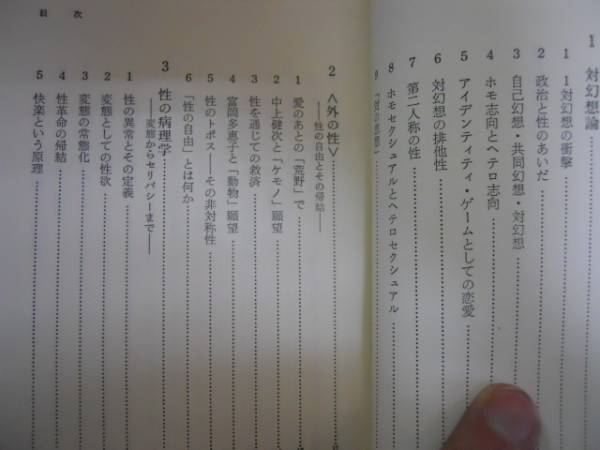 1 対幻想論
1 1対幻想の衝撃
2 政治と性のあいだ
3 自己幻想・共同幻想・対幻想
4 ホモ志向とヘテロ志向
5 アイデンティティ・ゲームとしての恋愛
6 対幻想の排他性
7 第二人称の性
8 ホモセクシュアルとヘテロセクシュアル
9 「対の思想」
2 〈外の性〉
——性の自由とその帰結——
1 愛のあとの「荒野」で
2 中上健次と「ケモノ」願望
3 性を通じての救済
4 富岡多恵子と「動物」願望
5 性のトポス——その非対称性
6 「性の自由」とは何か
3 性の病理学
——変態からセリバシーまで——
1 性の異常とその定義
2 変態としての性欲
3 変態の常態化
4 性革命の帰結
5 快楽という原理
目次